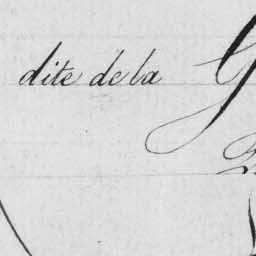 dite de la